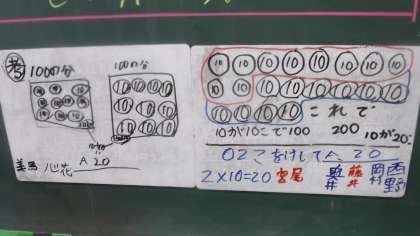 考
100の分
100の分
⑩⑩⑩
⑩⑩⑩⑩
⑩⑩⑩
⑩⑩⑩⑩
⑩⑩⑩
⑩⑩⑩
A 20
心花
⑩⑩⑩⑩⑩⑩⑩
⑩⑩⑩⑩⑩⑩⑩⑩
⑩⑩⑩⑩これで
10が10こで100 200 10が20こ
02こをけして A 20
2×10=20 宮尾 奥井 藤井 岡村 西野